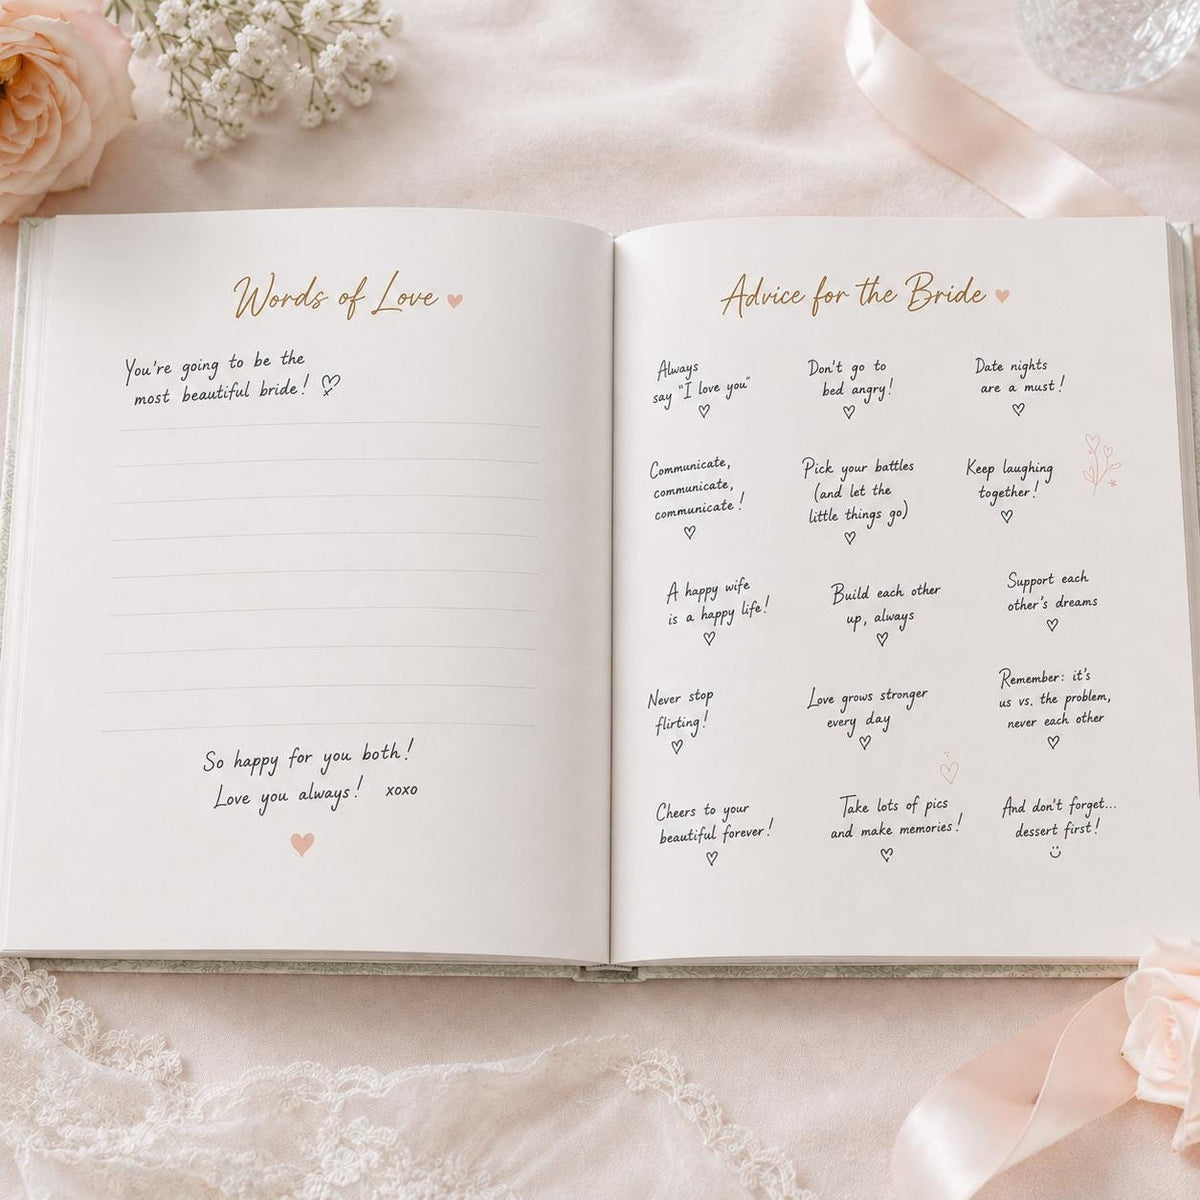 Words of Love
You're going to be the
most beautiful bride!
So happy for you both!
Love you always! xoxo
Advice for the Bride
Always
say "I love you"
Don't go to
bed angry!
Date nights
are a must!
Communicate,
communicate,
communicate!
Pick your battles
(and let the
little things go)
Keep laughing
together!
A happy wife
is a happy life!
Build each other
up, always
Support each
other's dreams
Never stop
flirting!
Love grows stronger
every day
Remember: it's
us vs. the problem,
never each other
Cheers to your
beautiful forever!
Take lots of pics
and make memories!
And don't forget...
dessert first!